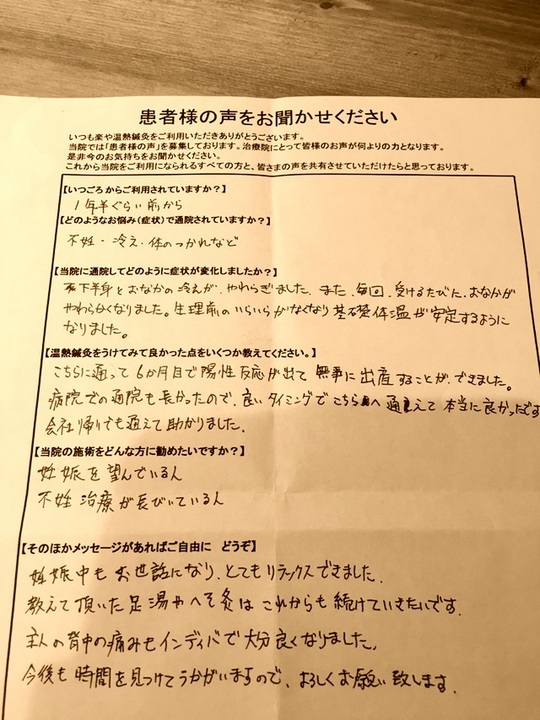 患者様の声をお聞かせください
いつも楽や温熱鍼灸をご利用いただきありがとうございます。
当院では「患者様の声」を募集しております。治療院にとって皆様のお声が何よりの力となります。
是非今のお気持ちをお聞かせください。
これから当院をご利用になられるすべての方と、皆さまの声を共有させていただけたらと思っております。
【いつごろからご利用されていますか？】
1年半ぐらい前から
【どのようなお悩み（症状）で通院されていますか？】
不妊・冷え・体のつかれなど
【当院に通院してどのように症状が変化しましたか？】
下半身とおなかの冷えが、やわらぎました。また、毎回、受けるたびに、おなかが
やわらかくなりました。生理前のいらいらがなくなり基礎体温が安定するように
なりました。
【温熱鍼灸をうけてみて良かった点をいくつか教えてください。】
こちらに通って6か月目で陽性反応が出て無事に出産することができました。
病院での通院も長かったので、良いタイミングでこちらへ通えて本当に良かったです
会社帰りでも通えて助かりました。
【当院の施術をどんな方に勧めたいですか？】
妊娠を望んでいる人
不妊治療が長びいている人
【そのほかメッセージがあればご自由に どうぞ】
妊娠中もお世話になり、とてもリラックスできました。
教えて頂いた足湯やへそ灸はこれからも続けていきたいです。
主人の背中の痛みもインディバで大分良くなりました。
今後も時間を見つけてうかがいますので、よろしくお願い致します。